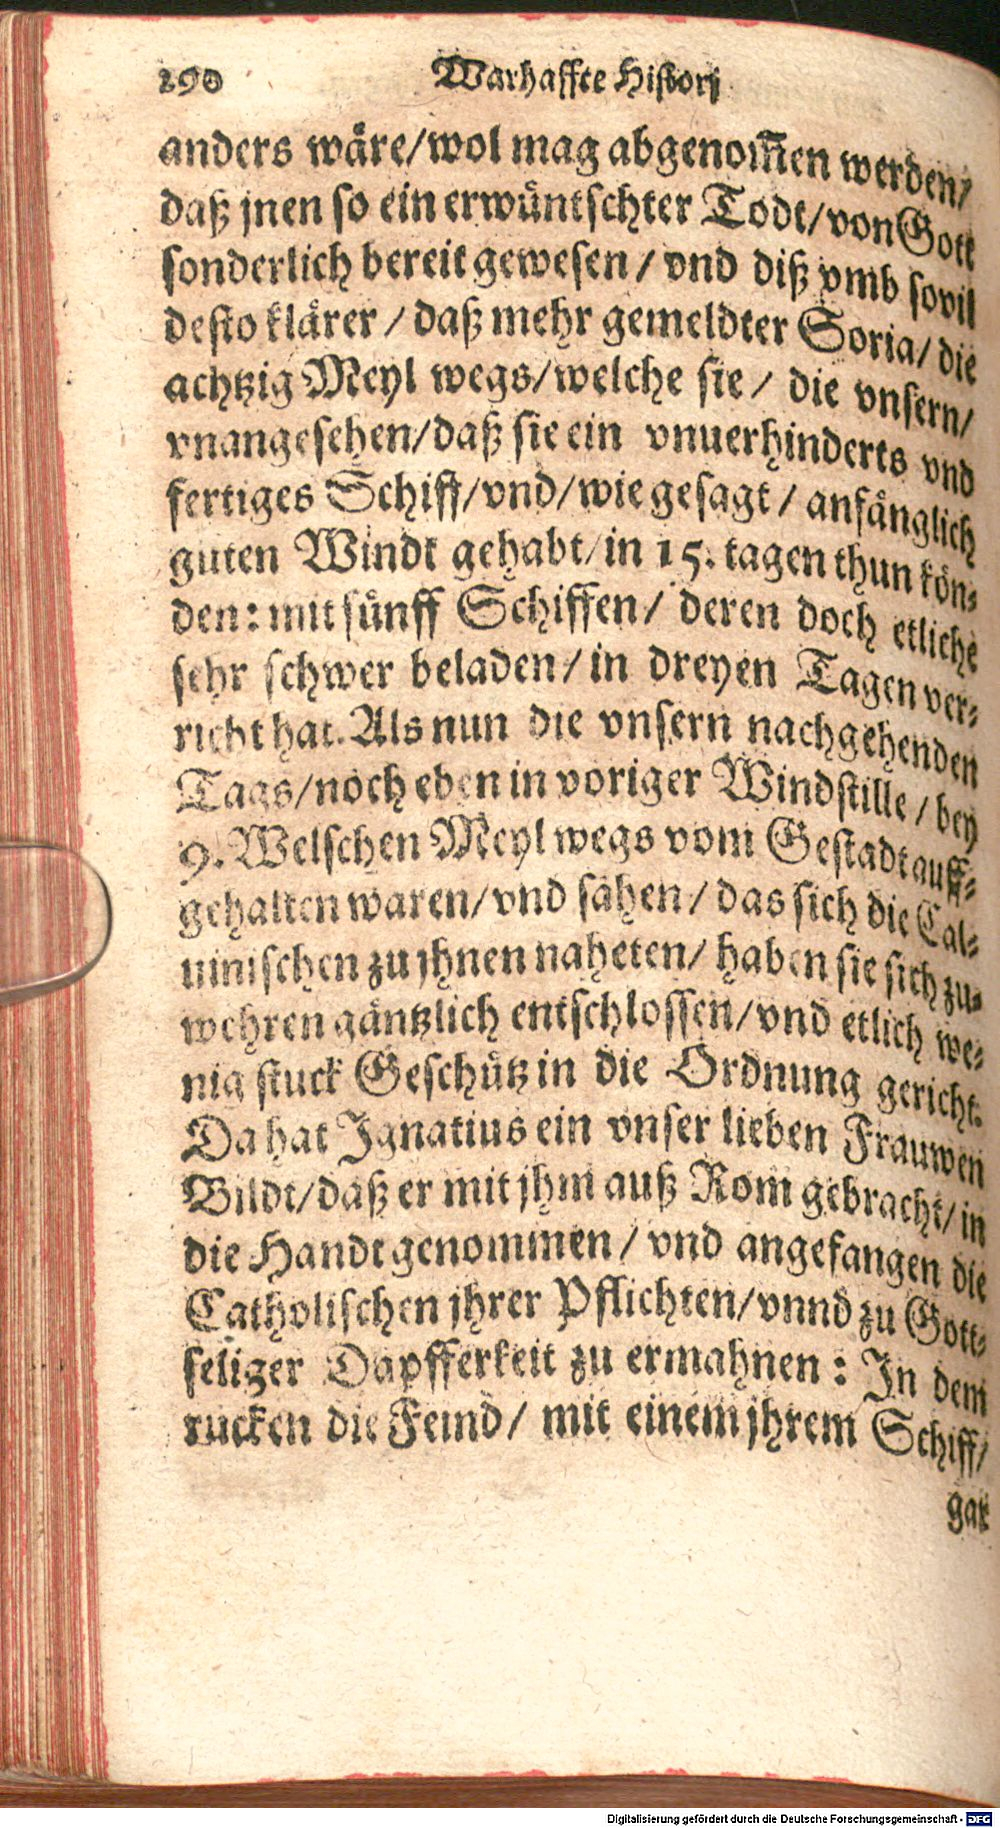 190 Warhaffte Histori
anders wäre/wol mag abgenom̅en werden/
daß jnen so ein erwüntschter Todt/von Gott
sonderlich bereit gewesen/vnd diß vmb sovil
desto klärer/daß mehr gemeldter Soria/die
achtzig Meyl wegs/welche sie/die vnsern/
vnangesehen/daß sie ein vnuerhinderts vnd
fertiges Schiff/vnd/wie gesagt/anfänglich
guten Windt gehabt/in 15. tagen thun kön-
den: mit fünff Schiffen/deren doch etliche
sehr schwer beladen/in dreyen Tagen ver-
richt hat. Als nun die vnsern nachgehenden
Tags/noch eben in voriger Windstille/bey
9. Welschen Meyl wegs vom Gestadt auff-
gehalten waren/vnd sahen/das sich die Cal-
uinischen zu jhnen naheten/haben sie sich zu-
wehren gäntzlich entschlossen/vnd etlich we-
nig stuck Geschütz in die Ordnung gericht.
Da hat Ignatius ein vnser lieben Frauwen
Bildt/daß er mit jhm auß Rom gebracht/in
die Handt genommen/vnd angefangen die
Catholischen jhrer Pflichten/vnnd zu Gott-
seliger Dapfferkeit zu ermahnen: In dem
rucken die Feind/mit einem jhrem Schiff/
gar
Digitalisierung gefördert durch die Deutsche Forschungsgemeinschaft - DFG